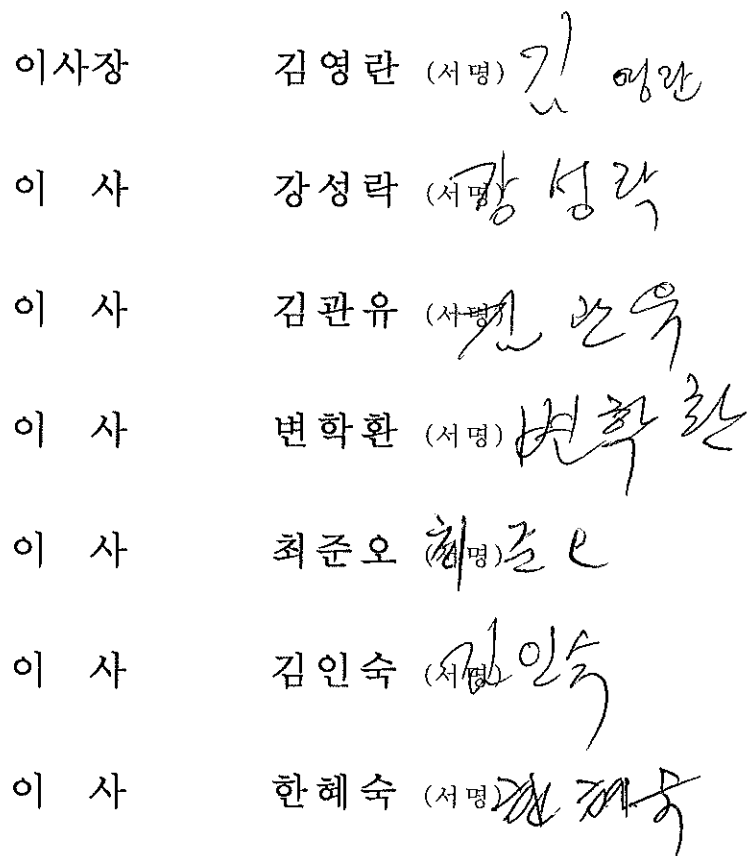 이사장 김영란 (서명) 김 영란
이 사 강성락 (서명) 강 성락
이 사 김관유 (서명) 김 관유
이 사 변학환 (서명) 변학환
이 사 최준오 (서명) 최준오
이 사 김인숙 (서명) 김인숙
이 사 한혜숙 (서명) 한혜숙